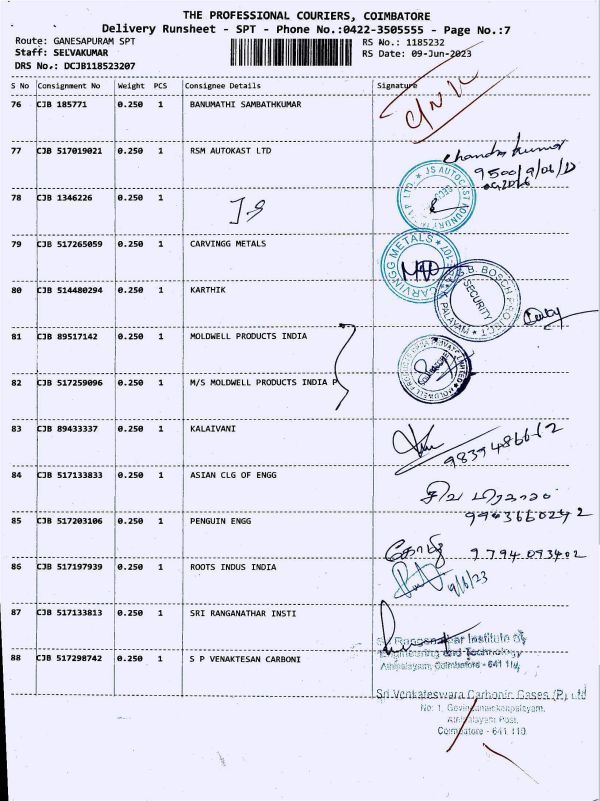 THE PROFESSIONAL COURIERS, COIMBATORE
Delivery Runsheet - SPT - Phone No.:0422-3505555 - Page No.:7
Route: GANESAPURAM SPT
RS No.: 1185232
Staff: SELVAKUMAR
RS Date: 09-Jun-2023
DRS No.: DCJB118523207
S No Consignment No Weight PCS Consignee Details Signature
76 CJB 185771 0.250 1 BANUMATHI SAMBATHKUMAR
77 CJB 517019021 0.250 1 RSM AUTOKAST LTD
78 CJB 1346226 0.250 1 JS
79 CJB 517265059 0.250 1 CARVINGG METALS
CARVINGG METALS
80 CJB 514480294 0.250 1 KARTHIK
SECURITY
81 CJB 89517142 0.250 1 MOLDWELL PRODUCTS INDIA
82 CJB 517259096 0.250 1 M/S MOLDWELL PRODUCTS INDIA P
83 CJB 89433337 0.250 1 KALAIVANI
84 CJB 517133833 0.250 1 ASIAN CLG OF ENGG
85 CJB 517203106 0.250 1 PENGUIN ENGG
9794093402
86 CJB 517197939 0.250 1 ROOTS INDUS INDIA
9/6/23
87 CJB 517133813 0.250 1 SRI RANGANATHAR INSTI
Institute of
Engineering and Technology
Athipalayam, Coimbatore - 641 110
88 CJB 517298742 0.250 1 S P VENAKTESAN CARBONI
Sri Venkateswara Carbonic Gases (P) Ltd
No: 1,
Athipalayam Post,
Coimbatore - 641 110